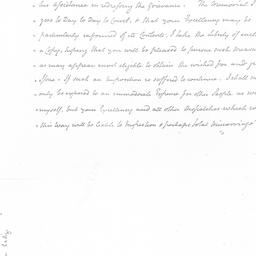 his Assistance in redressing the Grievance. The Memorial I
goes to Day to Day to Court, & that your Excellency may be
particularly informed of its Contents, I take the liberty of
a Copy, hoping that you will be pleased to pursue such
as may appear most eligible to obtain the wished for and
If such an imposition is suffered to continue. I shall
only be exposed to an immoderate Expence for other People as
myself, but your Excellency and all other Dispatches which
this way will be liable to Inspection & perhaps total